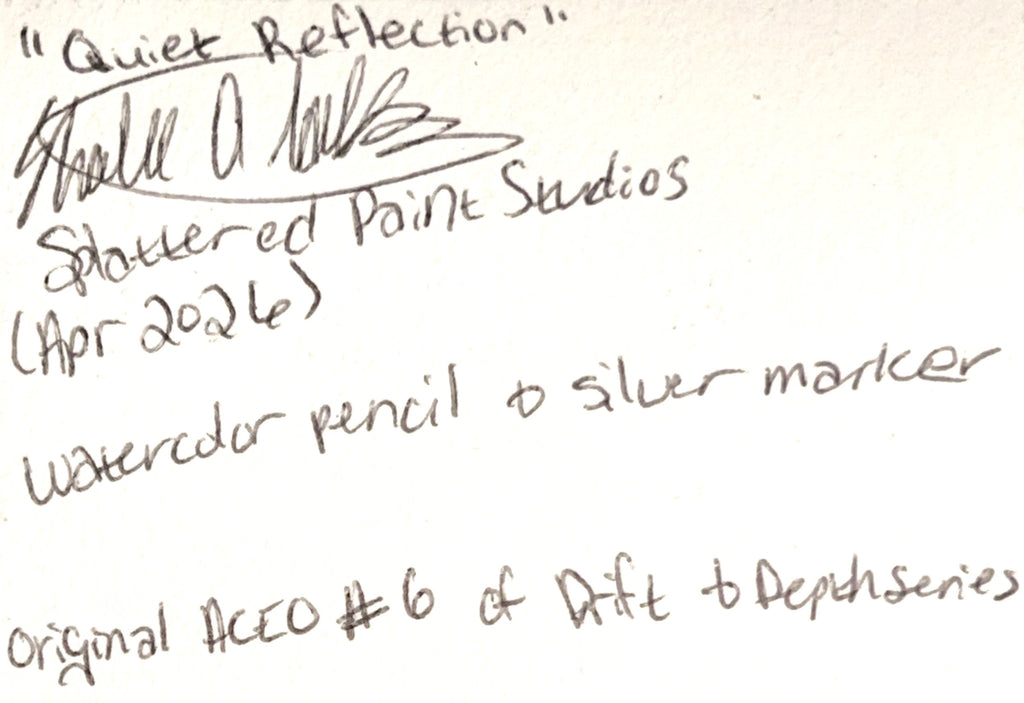 "Quiet Reflection"
Splattered Paint Studios
(Apr 2026)
watercolor pencil & silver marker
Original ACEO #6 of Drift & Depth series